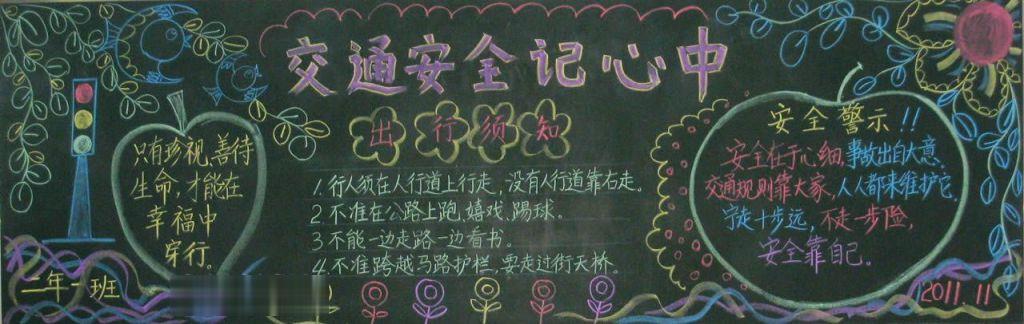 交通安全记心中
只有珍视,善待
生命,才能在
幸福中
穿行。
二年一班
出行须知
1.行人须在人行道上行走,没有人行道靠右走。
2.不准在公路上跑、嬉戏、踢球。
3不能一边走路一边看书。
4.不准跨越马路护栏,要走过街天桥。
安全警示!!
安全在于心细,事故出自大意,
交通规则靠大家,人人都来维护它。
宁走十步远,不走一步险,
安全靠自己。
2011.11